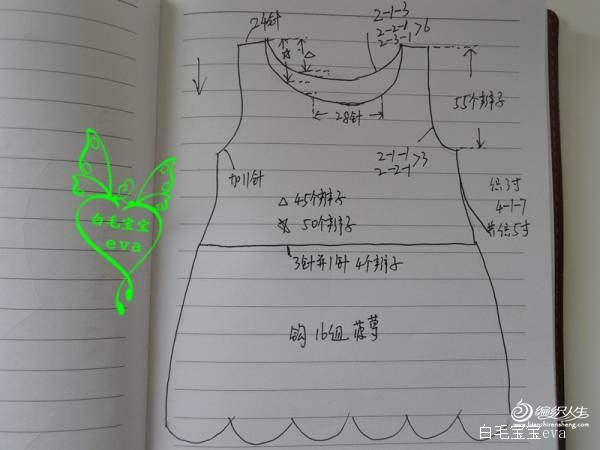 24针
2-1-3
2-2-1 >6
2-3-1
☆ △
28针
55个辫子
2-1-1 >3
2-2-1
加11针
△ 45个辫子
☆ 50个辫子
4-1-7
3针并1针 4个辫子
钩16组菠萝
白毛宝宝
eva
编织人生
bianzhirensheng.com
白毛宝宝eva